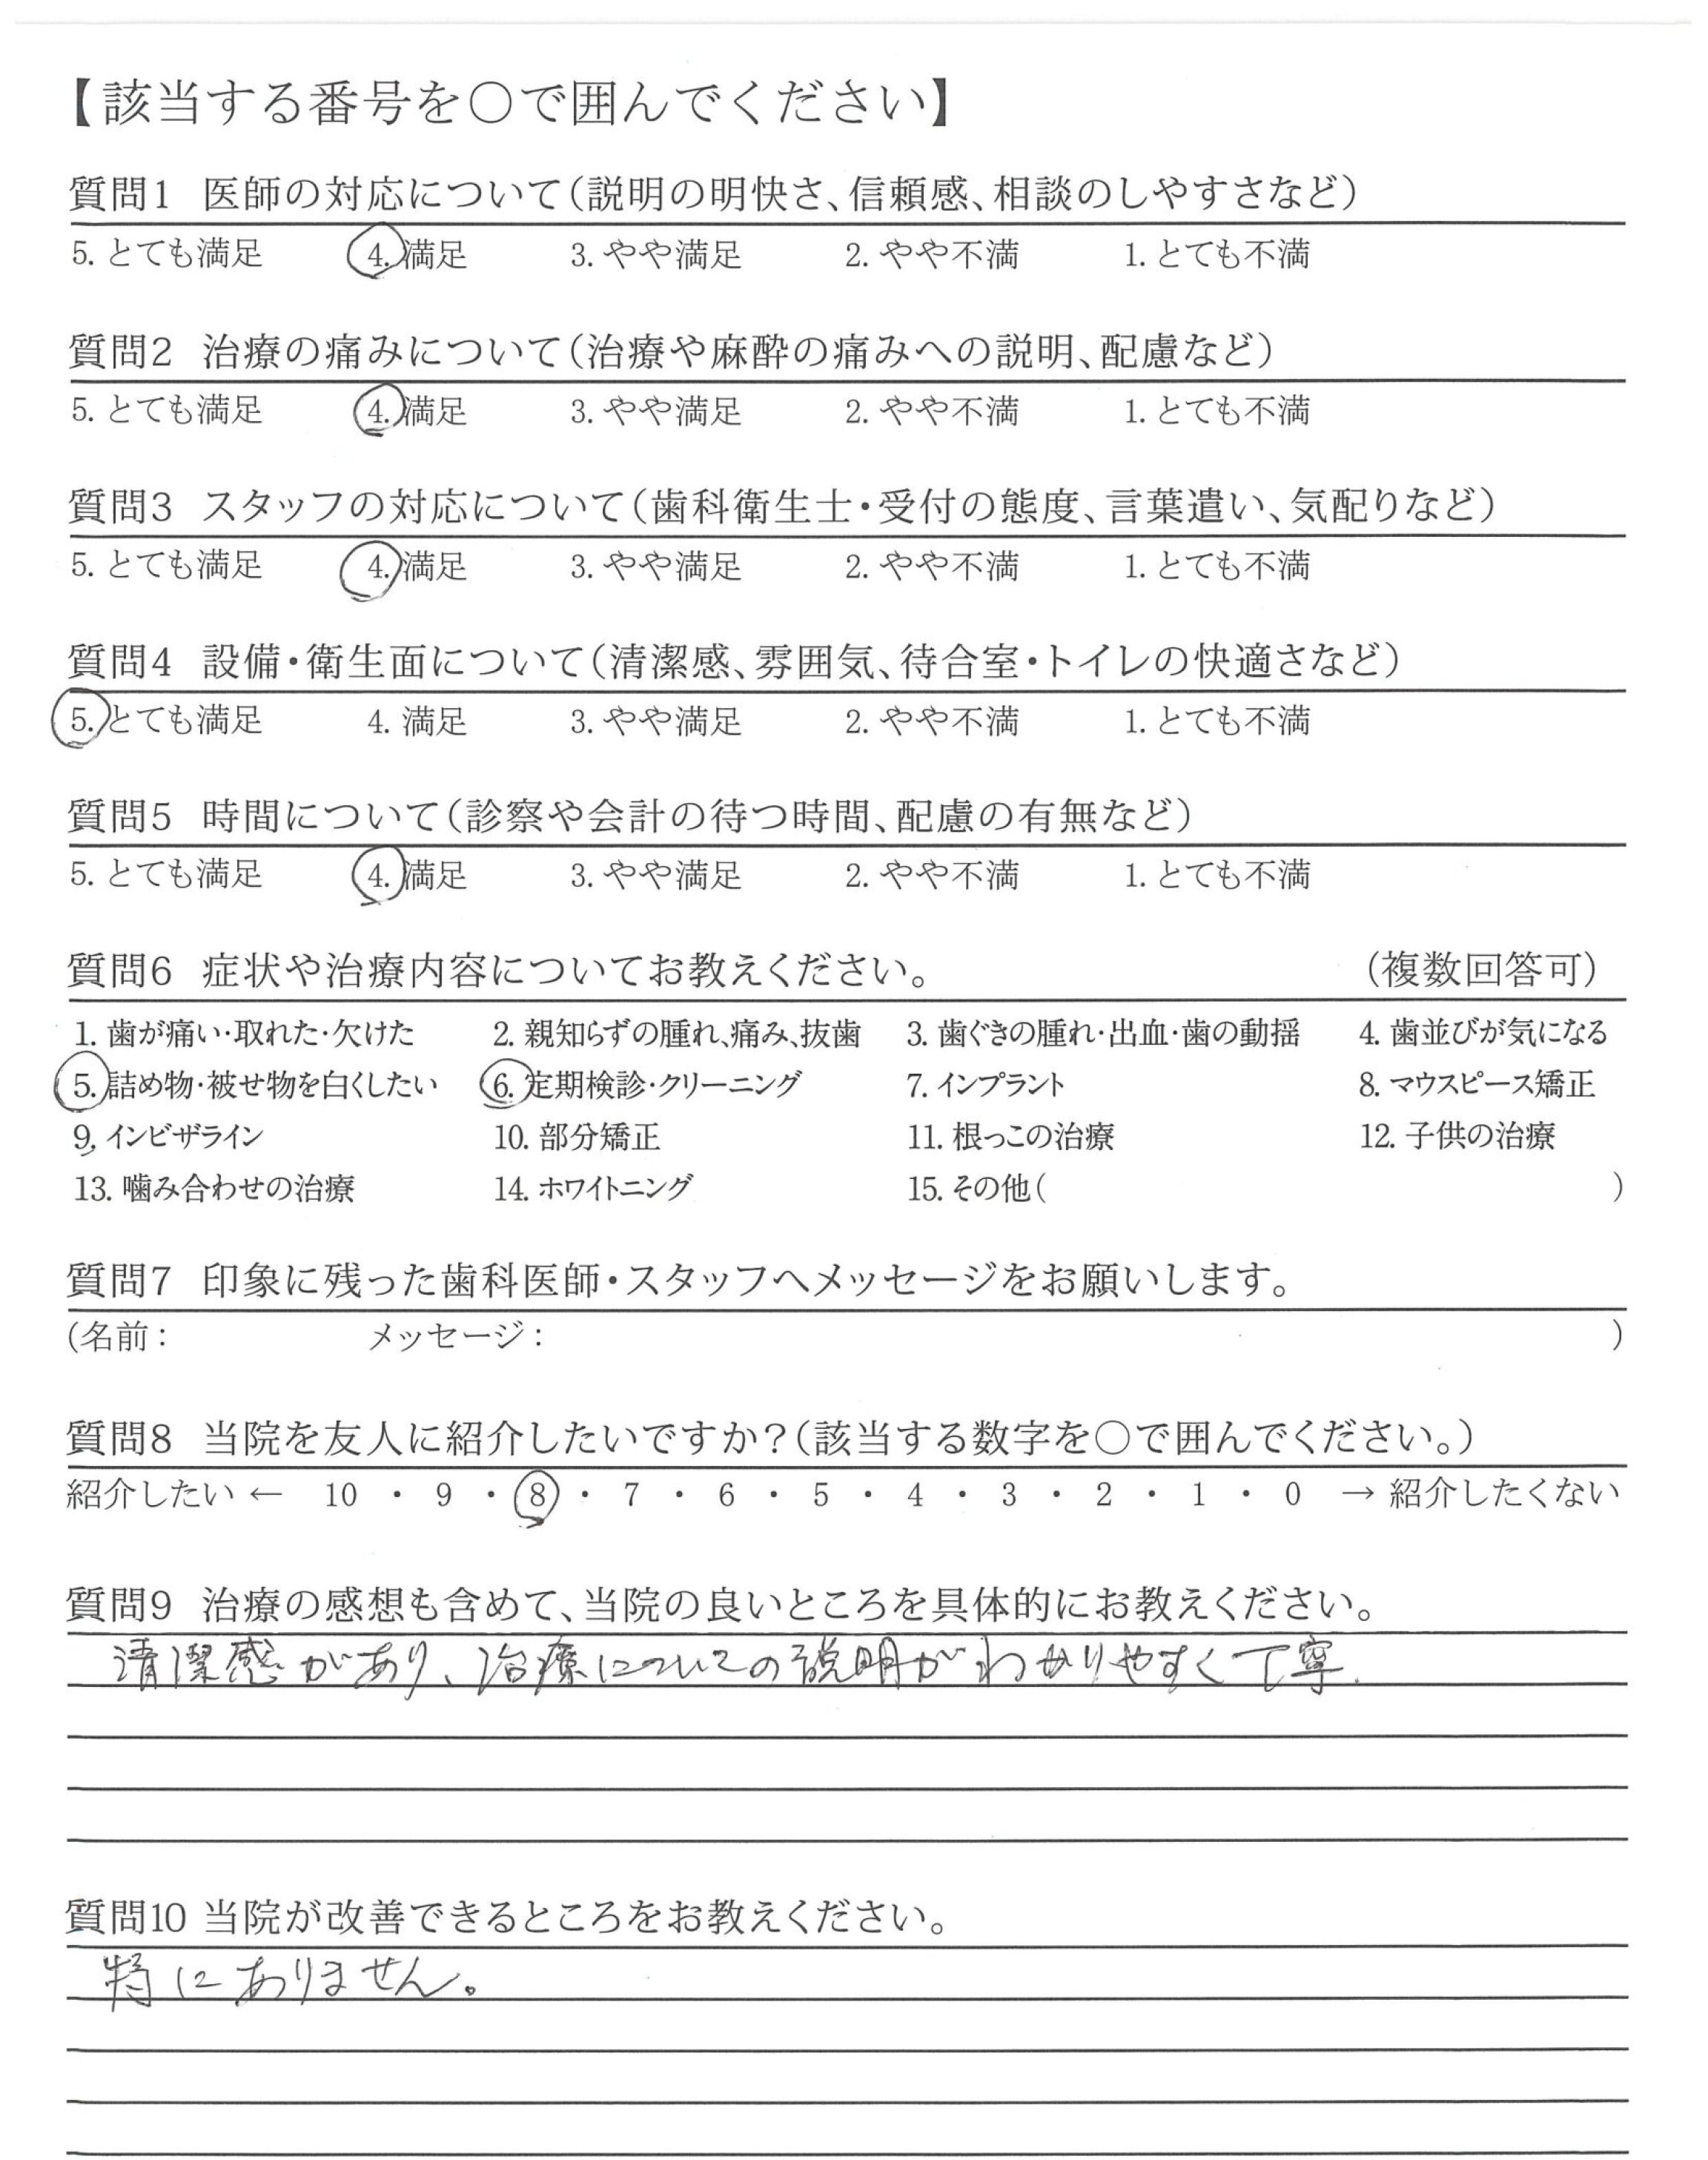 【該当する番号を〇で囲んでください】
質問1 医師の対応について(説明の明快さ、信頼感、相談のしやすさなど)
5. とても満足 4. 満足 3. やや満足 2. やや不満 1. とても不満
質問2 治療の痛みについて(治療や麻酔の痛みへの説明、配慮など)
5. とても満足 4. 満足 3. やや満足 2. やや不満 1. とても不満
質問3 スタッフの対応について(歯科衛生士・受付の態度、言葉遣い、気配りなど)
5. とても満足 4. 満足 3. やや満足 2. やや不満 1. とても不満
質問4 設備・衛生面について(清潔感、雰囲気、待合室・トイレの快適さなど)
5. とても満足 4. 満足 3. やや満足 2. やや不満 1. とても不満
質問5 時間について(診察や会計の待つ時間、配慮の有無など)
5. とても満足 4. 満足 3. やや満足 2. やや不満 1. とても不満
質問6 症状や治療内容についてお教えください。 (複数回答可)
1. 歯が痛い・取れた・欠けた 2. 親知らずの腫れ、痛み、抜歯 3. 歯ぐきの腫れ・出血・歯の動揺 4. 歯並びが気になる
5. 詰め物・被せ物を白くしたい 6. 定期検診・クリーニング 7. インプラント 8. マウスピース矯正
9. インビザライン 10. 部分矯正 11. 根っこの治療 12. 子供の治療
13. 噛み合わせの治療 14. ホワイトニング 15. その他( )
質問7 印象に残った歯科医師・スタッフへメッセージをお願いします。
(名前: メッセージ: )
質問8 当院を友人に紹介したいですか?(該当する数字を〇で囲んでください。)
紹介したい ← 10 ・ 9 ・ 8 ・ 7 ・ 6 ・ 5 ・ 4 ・ 3 ・ 2 ・ 1 ・ 0 → 紹介したくない
質問9 治療の感想も含めて、当院の良いところを具体的にお教えください。
清潔感があり、治療についての説明がわかりやすく丁寧.
質問10 当院が改善できるところをお教えください。
特にありません。